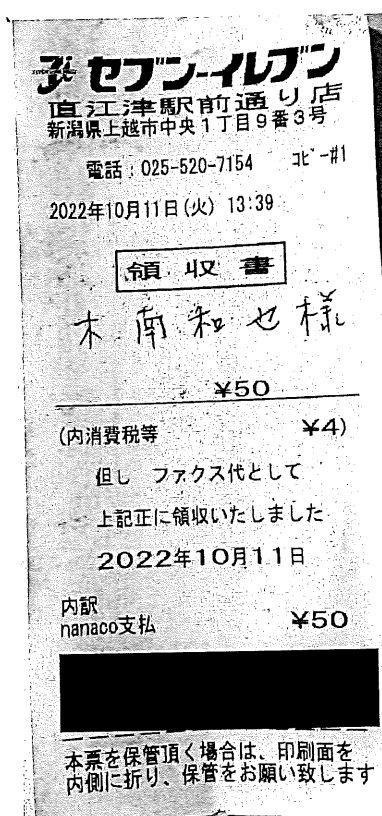 セブン-イレブン
直江津駅前通り店
新潟県上越市中央1丁目9番3号
電話:025-520-7154 コピー#1
2022年10月11日(火) 13:39
領収書
木南和也様
¥50
(内消費税等 ¥4)
但し ファクス代として
上記正に領収いたしました
2022年10月11日
内訳
nanaco支払 ¥50
本票を保管頂く場合は、印刷面を
内側に折り、保管をお願い致します